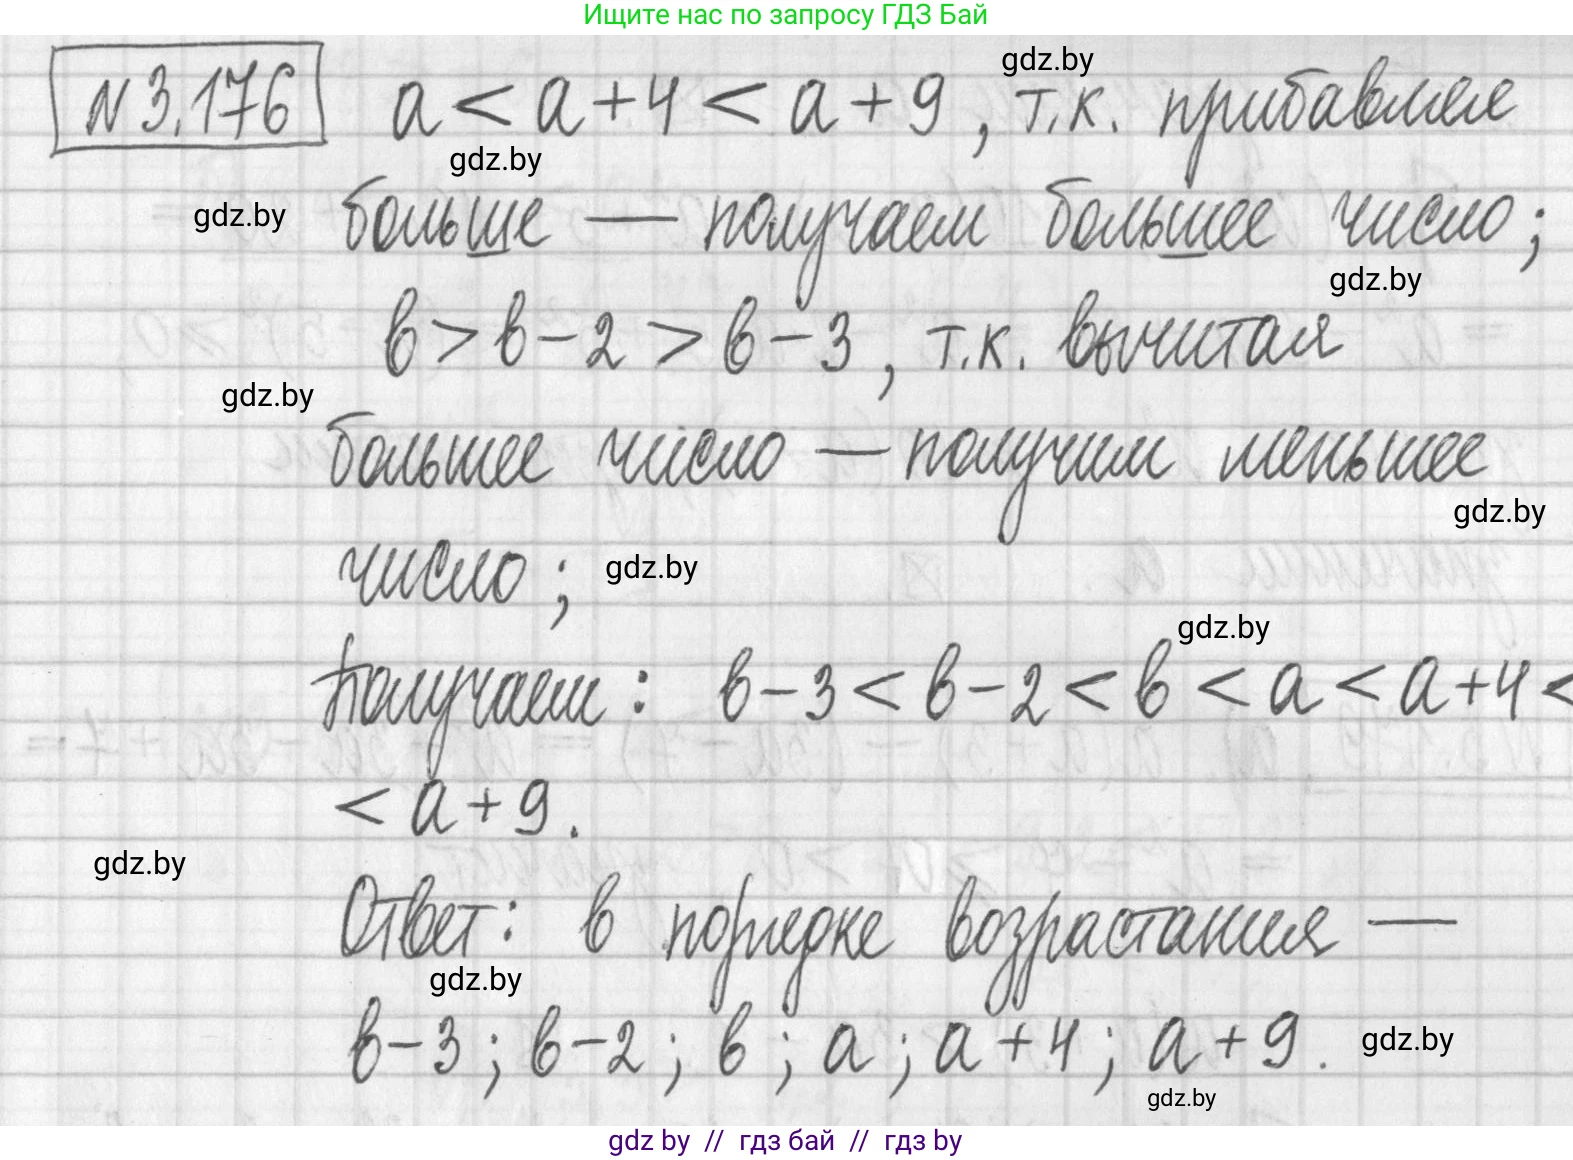 Ищите нас по запросу ГДЗ Бай
gdz.by
N 3.176 a < a + 4 < a + 9 , т.к. прибавляем
gdz.by
больше — получаем большее число;
gdz.by
gdz.by
в > в - 2 > в - 3 , т.к. вычитая
gdz.by
большее число — получим меньшее
gdz.by
число ;
gdz.by
gdz.by
Получаем : в - 3 < в - 2 < в < a < a + 4 <
< a + 9 .
gdz.by
Ответ: в порядке возрастания —
gdz.by
в - 3 ; в - 2 ; в ; a ; a + 4 ; a + 9 .
gdz.by
gdz.by
gdz by // гдз бай // гдз by